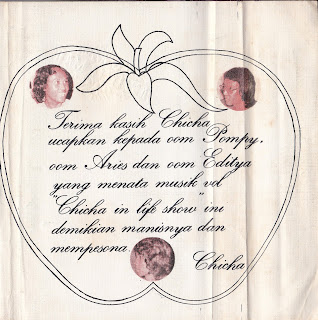 Terima kasih Chicha
ucapkan kepada oom Pompy,
oom Aries dan oom Editya
yang menata musik vol
"Chicha in life show" ini
demikian manisnya dan
mempesona.
Chicha